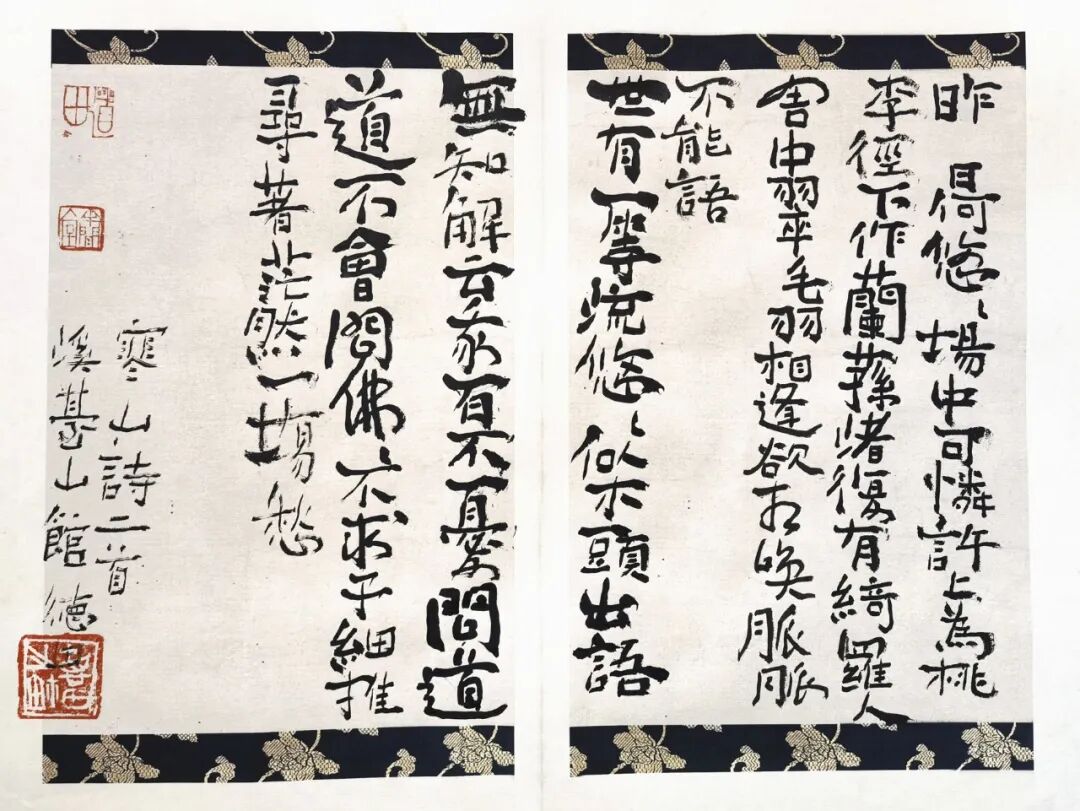 昨日何悠〻場中可憐許上為桃
李徑下作蘭蓀渚復有綺羅人
舍中翠毛羽相逢欲相喚脈脈
不能語
世有一等流悠〻似木頭出語
無知解云我百不憂問道
道不會問佛不求子細推
尋著茫然一場愁
寒山詩二首
山館德